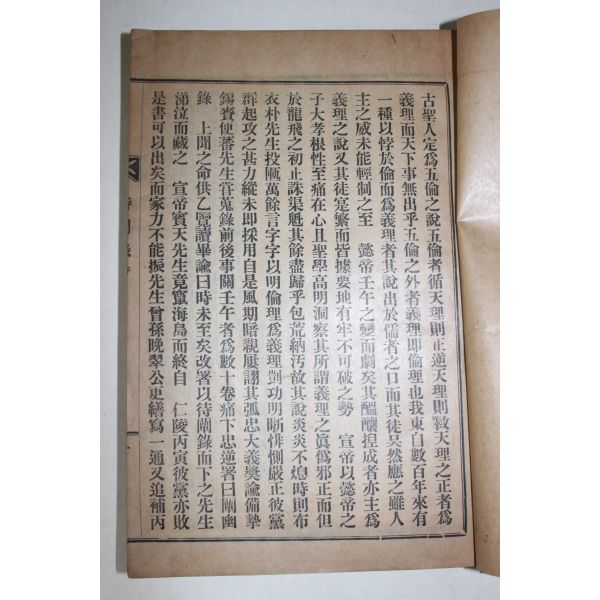 古聖人定爲五倫之說五倫者循天理則正逆天理則斁天理之正者爲
義理而天下事無出乎五倫之外者義理即倫理也我東自數百年來有
一種以悖於倫而爲義理者其說出於儒者之口而其徒哭然應之雖人
主之威未能輕制之至 懿帝壬午之變而劇矣其醞釀捏成者亦主爲
義理之說又其徒寔繁而皆據要地有牢不可破之勢 宣帝以懿帝之
子大孝根性至痛在心且聖學高明洞察其所謂義理之眞僞邪正而但
於龍飛之初止誅渠魁其餘盡歸乎包荒納汚故其說炎炎不熄時則布
衣朴先生投匭萬餘言字字以明倫理爲義理剴功明晣悱惻嚴正彼黨
群起攻之甚力縱未即採用自是風期暗親屢詡其弧忠大義獎諭備摯
錫賚便蕃先生嘗蒐錄前後事關壬午者爲數十卷痛下忠逆署曰闡幽
錄 上聞之命供乙覽讀畢諭曰時未至矣改署以待闡錄而下之先生
涕泣而藏之 宣帝賓天先生竟竄海島而終自 仁陵丙寅彼黨亦敗
是書可以出矣而家力不能振先生曾孫晩翠公更繕寫一通又追補丙